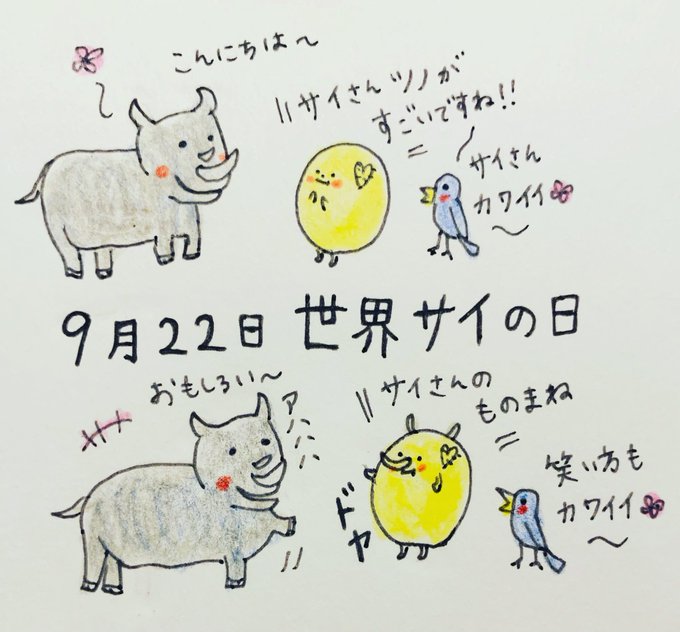 こんにちは〜
サイさんツノが
すごいですね!!
サイさん
カワイイ
9月22日 世界サイの日
おもしろい〜
アハハハ
サイさんの
ものまね
ドヤ
笑い方も
カワイイ